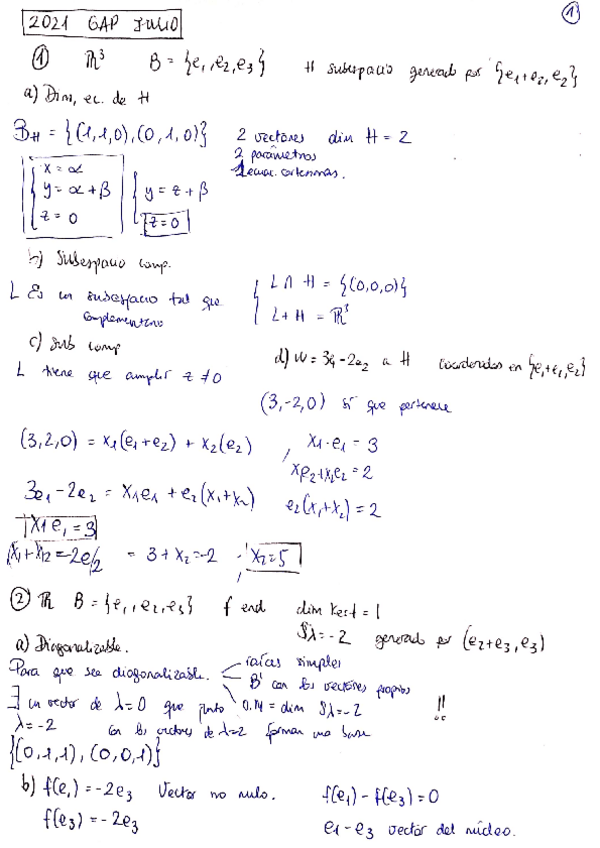 2021 GAP JULIO
1
① ℝ³ B = {e₁, e₂, e₃} H subespacio generado por {e₁+e₂, e₂}
a) Dim, ec. de H
B_H = {(1,1,0), (0,1,0)} 2 vectores dim H = 2
2 parámetros
1 ecuac. cartesianas.
{ x = α
y = α + β
z = 0
{ y = z + β
z = 0
b) Subespacio comp.
L Es un subespacio tal que
complementario
{ L ∩ H = {(0,0,0)}
L + H = ℝ³
c) Sub comp
L tiene que cumplir z ≠ 0
d) w = 3e₁ - 2e₂ a H coordenadas en {e₁+e₂, e₂}
(3,-2,0) sí que pertenece
(3,2,0) = x₁(e₁+e₂) + x₂(e₂)
x₁·e₁ = 3
x₁e₂+x₂e₂ = 2
3e₁ - 2e₂ = x₁e₁ + e₂(x₁+x₂)
e₂(x₁+x₂) = 2
x₁e₁ = 3
x₁ + x₂ = -2e₂ = 3 + x₂ = -2 x₂ = 5
② ℝ B = {e₁, e₂, e₃} f end dim Ker f = 1
Sλ = -2 generado por (e₂+e₃, e₃)
a) Diagonalizable.
Para que sea diagonalizable.
raíces simples
B' con los vectores propios
0.M = dim Sλ = -2
∃ un vector de λ = 0 que junto
!!
λ = -2 con los vectores de λ = 2 forman una base
{(0,1,1), (0,0,1)}
b) f(e₁) = -2e₃ Vector no nulo. f(e₁) - f(e₃) = 0
f(e₃) = -2e₃ e₁ - e₃ vector del núcleo.